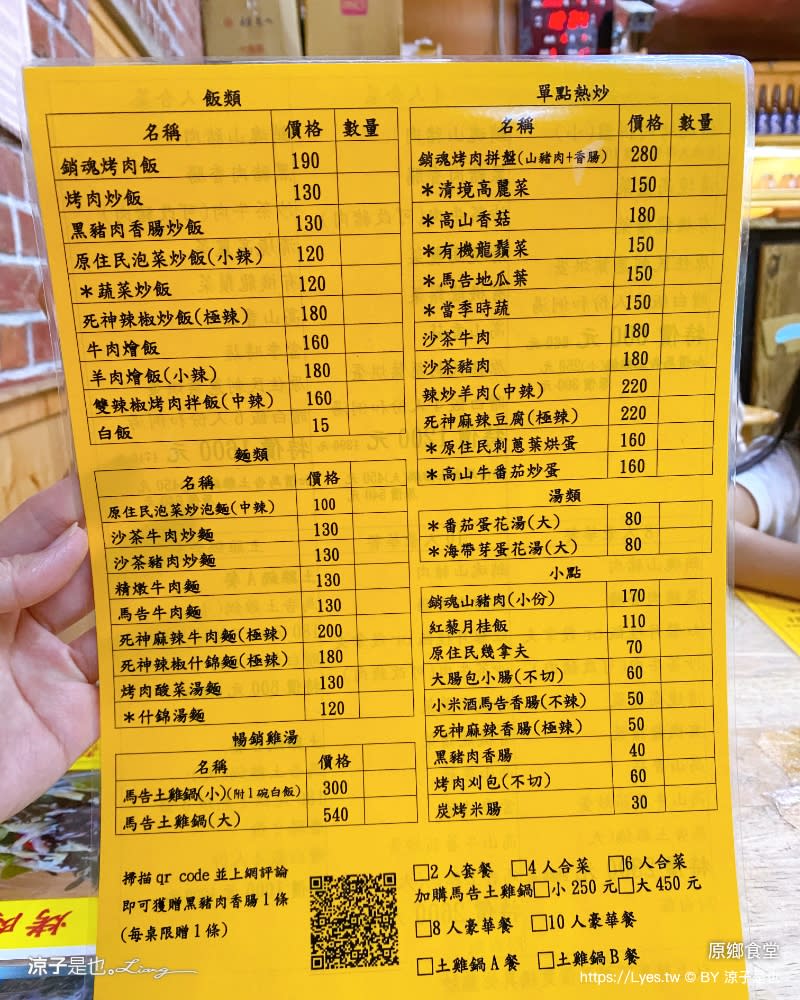 飯類
名稱 價格 數量
銷魂烤肉飯 190
烤肉炒飯 130
黑豬肉香腸炒飯 130
原住民泡菜炒飯(小辣) 120
＊蔬菜炒飯 120
死神辣椒炒飯(極辣) 180
牛肉燴飯 160
羊肉燴飯(小辣) 180
雙辣椒烤肉拌飯(中辣) 160
白飯 15
麵類
名稱 價格
原住民泡菜炒泡麵(中辣) 100
沙茶牛肉炒麵 130
沙茶豬肉炒麵 130
精燉牛肉麵 130
馬告牛肉麵 130
死神麻辣牛肉麵(極辣) 200
死神辣椒什錦麵(極辣) 180
烤肉酸菜湯麵 130
＊什錦湯麵 120
暢銷雞湯
名稱 價格
馬告土雞鍋(小)(附1碗白飯) 300
馬告土雞鍋(大) 540
掃描 qr code 並上網評論
即可獲贈黑豬肉香腸1條
(每桌限贈1條)
單點熱炒
名稱 價格 數量
銷魂烤肉拼盤(山豬肉+香腸) 280
＊清境高麗菜 150
＊高山香菇 180
＊有機龍鬚菜 150
＊馬告地瓜葉 150
＊當季時蔬 150
沙茶牛肉 180
沙茶豬肉 180
辣炒羊肉(中辣) 220
死神麻辣豆腐(極辣) 220
＊原住民刺蔥葉烘蛋 160
＊高山牛番茄炒蛋 160
湯類
＊番茄蛋花湯(大) 80
＊海帶芽蛋花湯(大) 80
小點
銷魂山豬肉(小份) 170
紅藜月桂飯 110
原住民幾拿夫 70
大腸包小腸(不切) 60
小米酒馬告香腸(不辣) 50
死神麻辣香腸(極辣) 50
黑豬肉香腸 40
烤肉刈包(不切) 60
炭烤米腸 30
□2人套餐 □4人合菜 □6人合菜
加購馬告土雞鍋□小250元□大450元
□8人豪華餐 □10人豪華餐
□土雞鍋A餐 □土雞鍋B餐
烤肉
涼子是也。Liang
原鄉食堂
https://Lyes.tw © BY 涼子是也